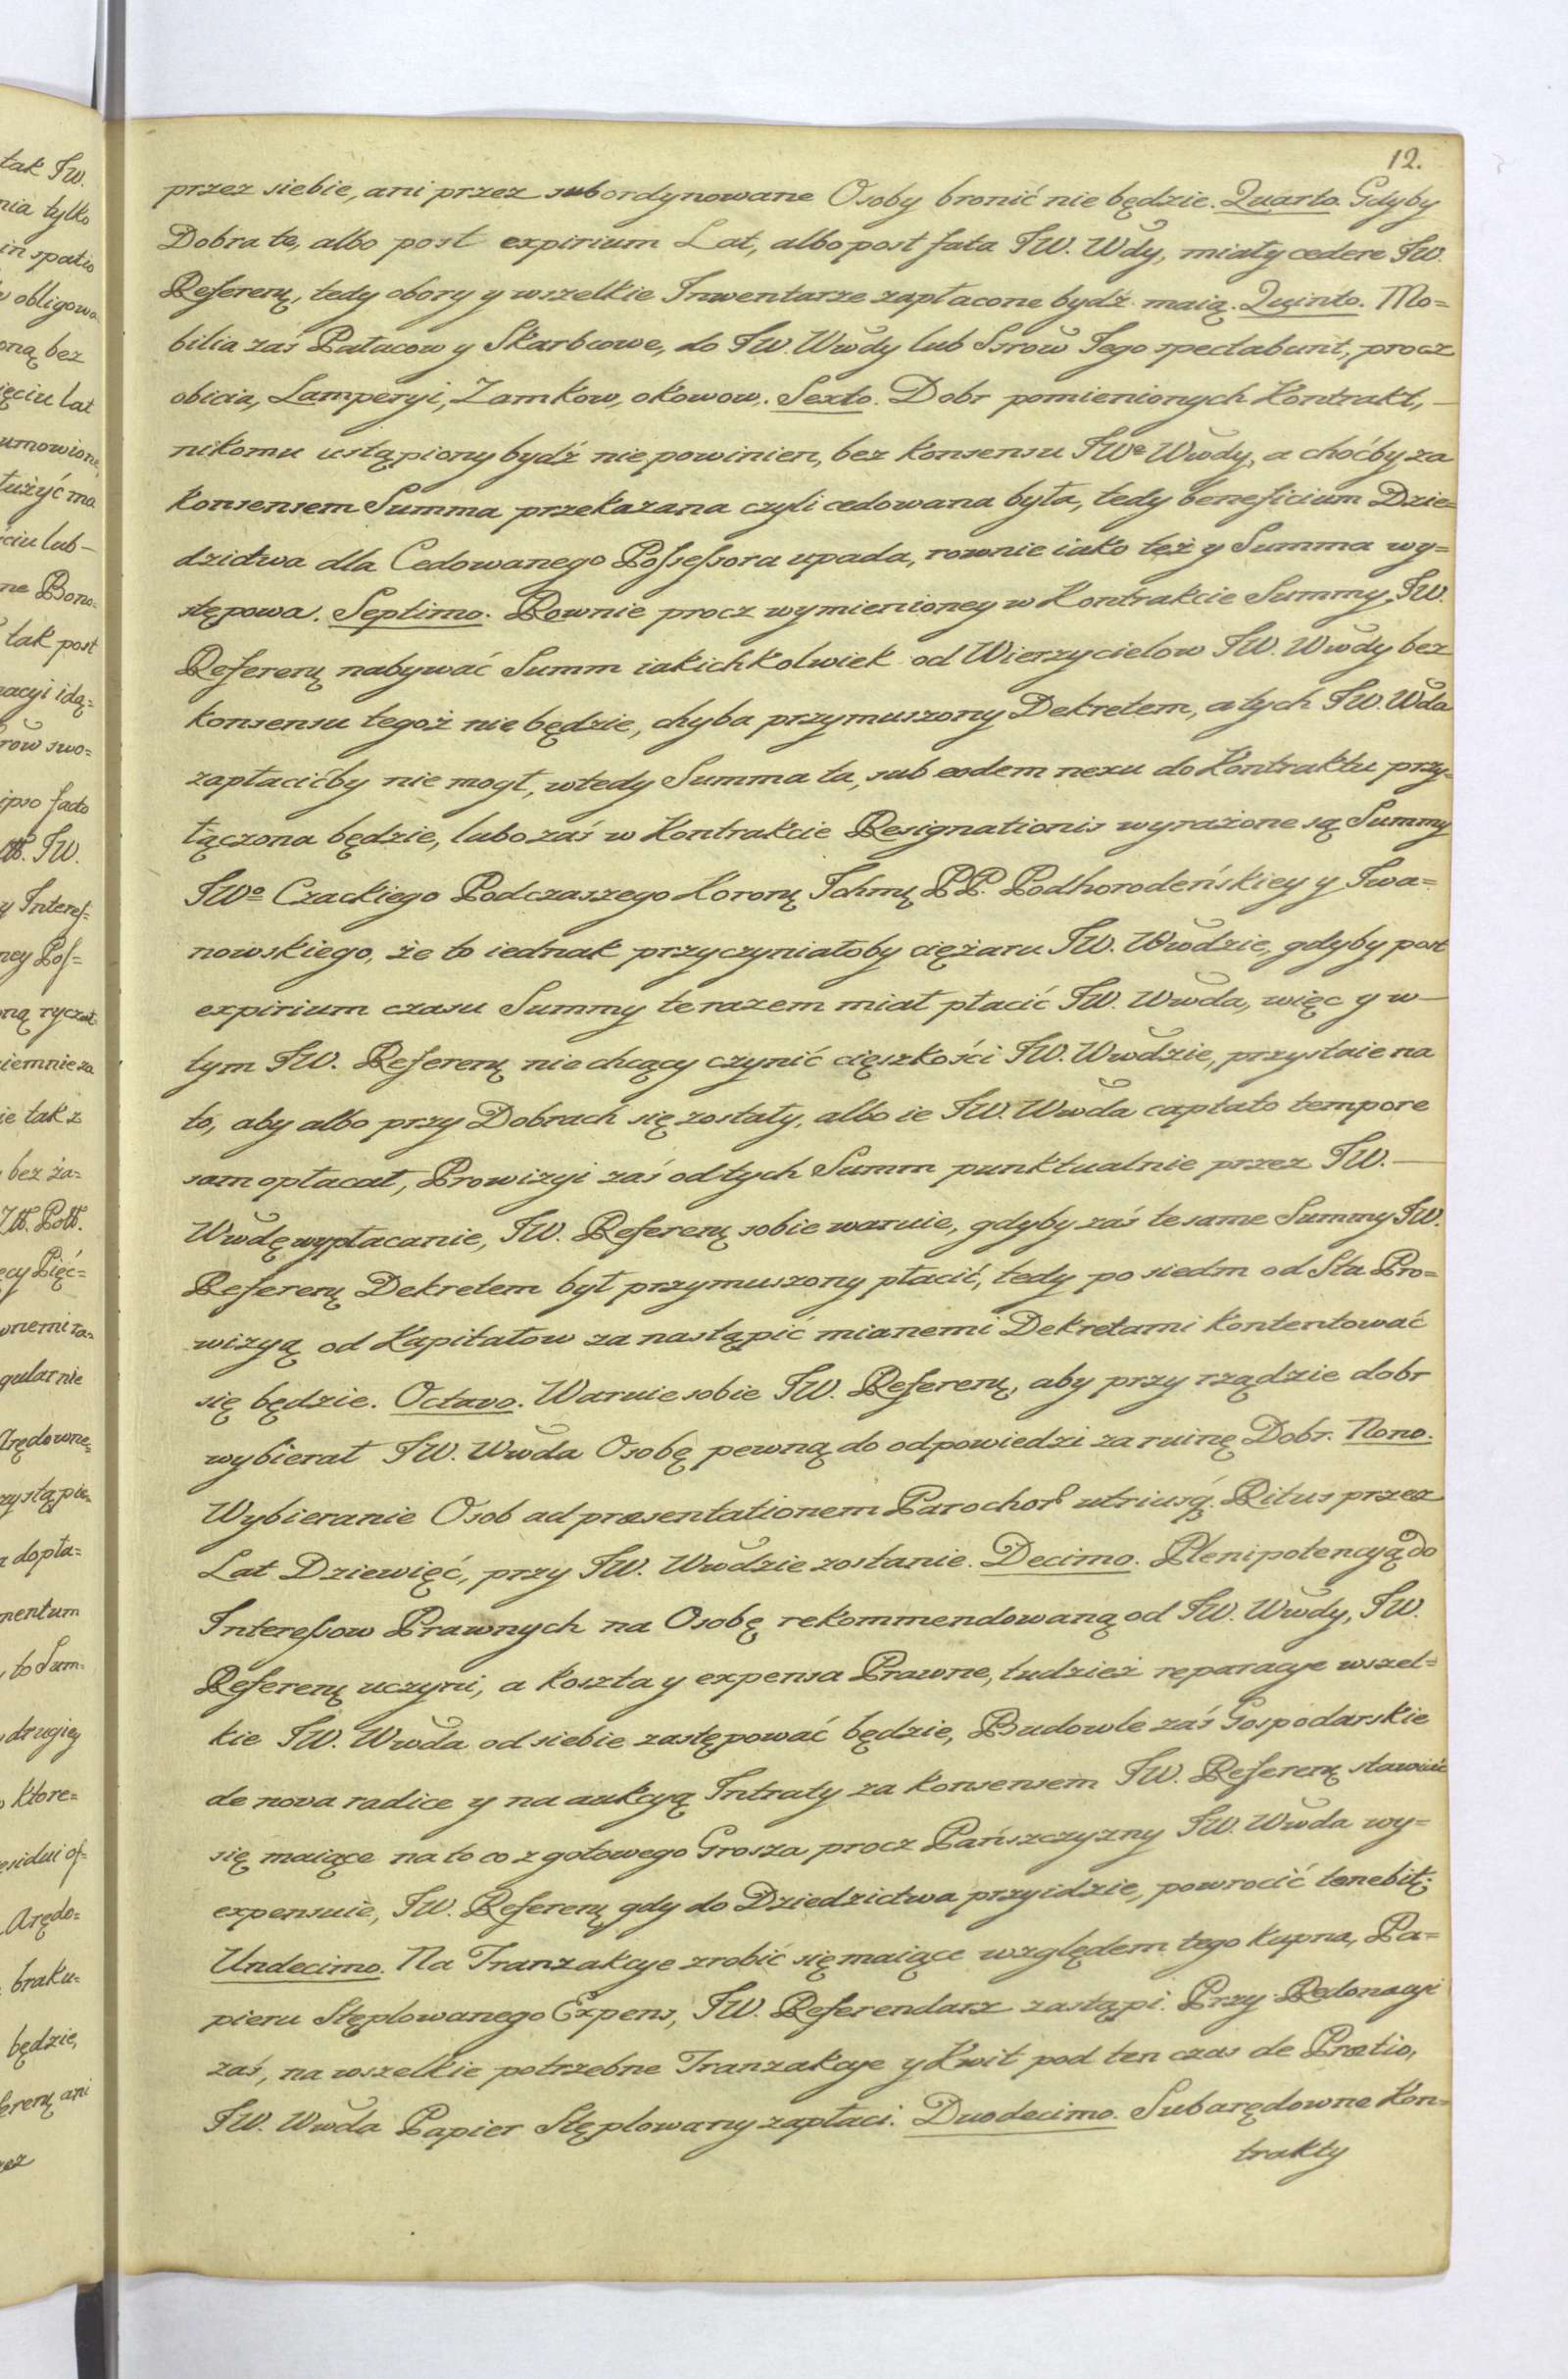 12.
przez siebie, ani przez subordynowane Osoby bronić nie będzie. Quarto. Gdyby
Dobra te, albo post expirium Lat, albo post fata JW. Wdy, miały cedere JW.
Referenų, tedy obory y wszelkie Inwentarze zapłacone bydź maią. Quinto. Mo=
bilia zaś Pałacow y Skarbcowe, do JW. Wwdy lub Ssrow Jego spectabunt, procz
obicia, Lamperyi, Zamkow, okowow. Sexto. Dobr pomienionych Kontrakt, —
nikomu ustąpiony bydź nie powinien, bez konsensu JWº Wwdy, a choćby za
konsensem Summa przekazana czyli cedowana była, tedy beneficium Dzie=
dzictwa dla Cedowanego Possessora upada, rownie iako też y Summa wy=
stępowa. Septimo. Rownie procz wymienioney w Kontrakcie Summy, JW.
Referenų nabywać Summ iakichkolwiek od Wierzycielow JW. Wwdy bez
konsensu tegoż nie będzie, chyba przymuszony Dekretem, a tych JW. Wda
zapłacićby nie mogł, wtedy Summa ta, sub eodem nexu do Kontraktu przy=
łączona będzie, lubo zaś w Kontrakcie Resignationis wyrażone są Summy
JWº Czackiego Podczaszego Koronų Jchmų PP. Podhorodeńskiey y Iwa=
nowskiego, że to iednak przyczyniałoby ciężaru JW. Wwdzie, gdyby post
expirium czasu Summy te razem miał płacić JW. Wwda, więc y w —
tym JW. Referenų nie chcący czynić cięszkości JW. Wwdzie, przystaie na
to, aby albo przy Dobrach się zostały, albo ie JW. Wwda captato tempore
sam opłacał, Prowizyi zaś od tych Summ punktualnie przez JW. —
Wwdę wypłacanie, JW. Referenų sobie waruie, gdyby zaś te same Summy JW.
Referenų Dekretem był przymuszony płacić, tedy po siedm od Sta Pro=
wizyą od Kapitałow za nastąpić mianemi Dekretami kontentować
się będzie. Octavo. Waruie sobie JW. Referenų, aby przy rządzie dobr
wybierał JW. Wwda Osobę pewną do odpowiedzi za ruinę Dobr. Nono.
Wybieranie Osob ad præsentationem Parochor utriusq. Ritus przez
Lat Dziewięć, przy JW. Wwdzie zostanie. Decimo. Plenipotencyą do
Interessow Prawnych na Osobę rekommendowaną od JW. Wwdy, JW.
Referenų uczyni, a koszta y expensa Prawne, tudzież reparacye wszel=
kie JW. Wwda od siebie zastępować będzie, Budowle zaś Gospodarskie
de nova radice y na aukcyą Intraty za konsensem JW. Referenų stawiać
się maiące na to co z gotowego Grosza procz Pańszczyzny JW. Wwda wy=
expensuie, JW. Referenų gdy do Dziedzictwa przyidzie, powrocić tenebit;
Undecimo. Na Tranzakcye zrobić się maiące względem tego kupna, Pa=
pieru Stęplowanego Expens, JW. Referendarz zastąpi. Przy Redonacyi
zaś, na wszelkie potrzebne Tranzakcye y Kwit pod ten czas de Prætio,
JW. Wwda Papier Stęplowany zapłaci. Duodecimo. Subarędowne Kon=
trakty